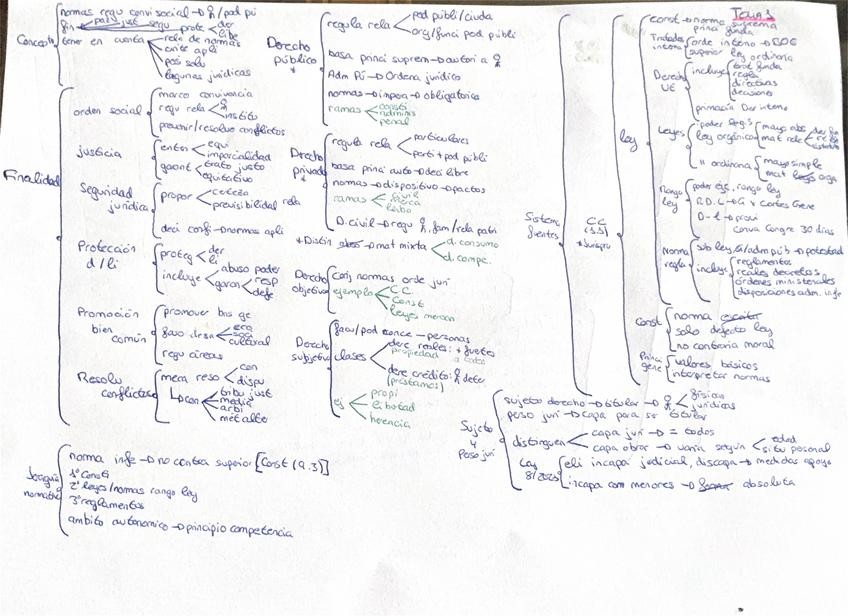 Tema 1
Concepto
normas regu convi social → /pod pú
fin paz just segu prote der libe
tener en cuenta rela de normas
apli
posi solu
lagunas jurídicas
Finalidad
orden social
marco convivencia
regu rela instit
prevenir/resolver conflictos
justicia
equi
imparcialidad
garant trato justo
equitativo
Seguridad jurídica
propor certeza
previsibilidad rela
deci confi → normas apli
Protección d/li
proteg der
li
incluye abuso poder
garan resp
defe
Promoción bien común
promover bns ge
favo desa eco
soci
cultural
regu áreas
Resolu conflictos
meca reso con
dispu
con tribu just
media
arbi
met alte
Jerarquía normativa
norma infe → no contra superior [Const (9.3)]
1º Const
2º leyes/normas rango ley
3º reglamentos
ámbito autonómico → principio competencia
Derecho público
regula rela pod públi/ciuda
org/funci pod públi
basa princi suprem → autori a
Adm Pú → Ordena jurídico
normas → impera → obligatorias
ramas consti
adminis
penal
Derecho privado
regula rela particulares
parti + pod públi
basa princi auto → deci libre
normas → dispositivo → pactos
ramas civil
D. civil → regu , fam/rela patri
* Distin → mat mixta d. consumo
d. compe.
Derecho objetivo
conj normas orde jurí
ejemplo C.C.
Const
leyes mercan
Derecho subjetivo
facu/pod conce → personas
clases dere reales: + fuertes
propiedad a todos
dere crédito: deter
(préstamos)
ej propi
libertad
herencia
Sistem fuentes
CC
* Jurispru
ley
const → norma suprema
princi funda
Tratados interna orde interno → BOE
superior ley ordinaria
Derecho UE
incluye trat funda
regla
directivas
decisiones
primacía Der interno
Leyes
poder legis
ley orgánica mayo abs
mat rela
" ordinaria mayo simple
mat ley orga
rango ley
poder eje, rango ley
R.D.L → G + Cortes Gene
D-l → provi
Conva Congre 30 días
Norma regla
sub ley, G/adm púb → potestad
incluye reglamentos
reales decretos
órdenes ministeriales
disposiciones adm. infe
Cost
norma
solo defecto ley
no contraria moral
Princi gene
valores básicos
interpretar normas
Sujeto y Perso jurí
sujeto derecho → titular → físicas
jurídicas
perso jurí → capa para ser titular
distinguen capa jurí → = todos
capa obrar → varía según edad
situ personal
Ley 8/2021
eli incapa judicial, discapa → medidas apoyo
incapa con menores → absoluta